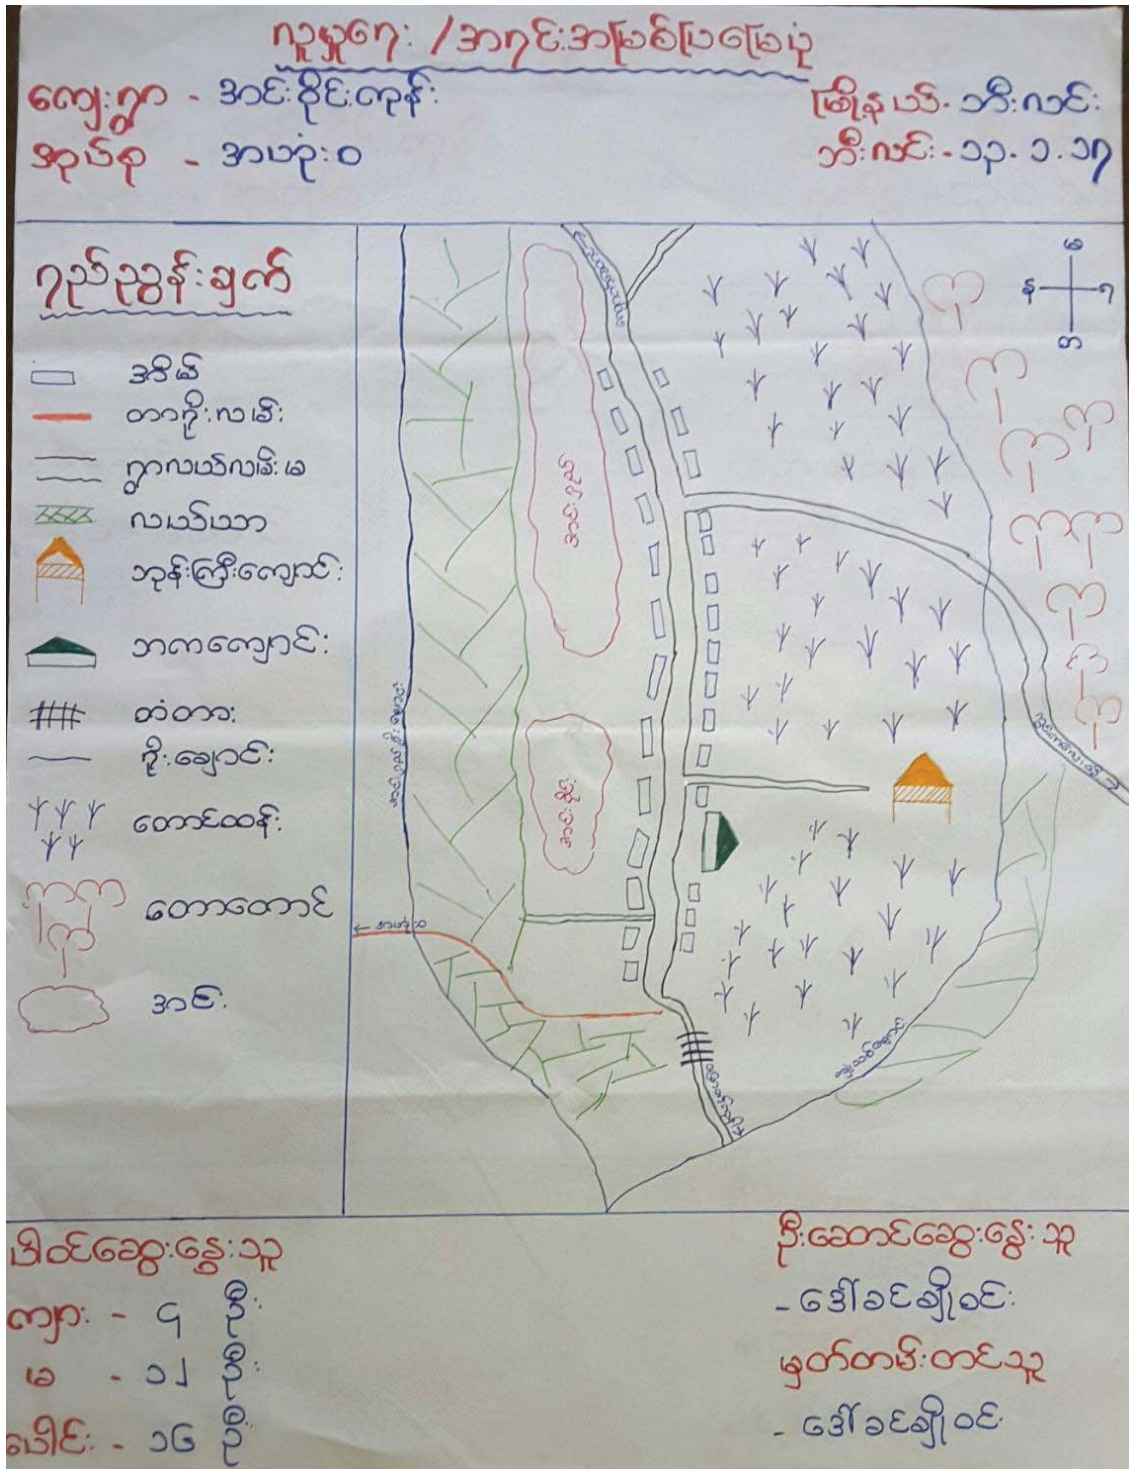 လူမှုရေး / အရင်းအမြစ်ပြမြေပုံ
ကျေးရွာ - အင်းဝိုင်းကုန်း
မြို့နယ် - ဘီးလင်း
အုပ်စု - အဟုံးဝ
ဘီးလင်း - ၁၃.၁.၁၇
ရည်ညွှန်းချက်
အိမ်
တာရိုးလမ်း
ရွာလယ်လမ်းမ
လယ်ယာ
ဘုန်းကြီးကျောင်း
ဘကကျောင်း
တံတား
ရိုးချောင်း
တောင်ထန်း
တောတောင်
အင်း
မ
န
ရ
တ
အင်းရှည်
အင်းဝိုင်း
← အဟုံးဝ
ပါဝင်ဆွေးနွေးသူ
ကျား - ၄ ဦး
မ - ၁၂ ဦး
ပေါင်း - ၁၆ ဦး
ဦးဆောင်ဆွေးနွေးသူ
- ဒေါ်ခင်ချိုဝင်း
မှတ်တမ်းတင်သူ
- ဒေါ်ခင်ချိုဝင်း